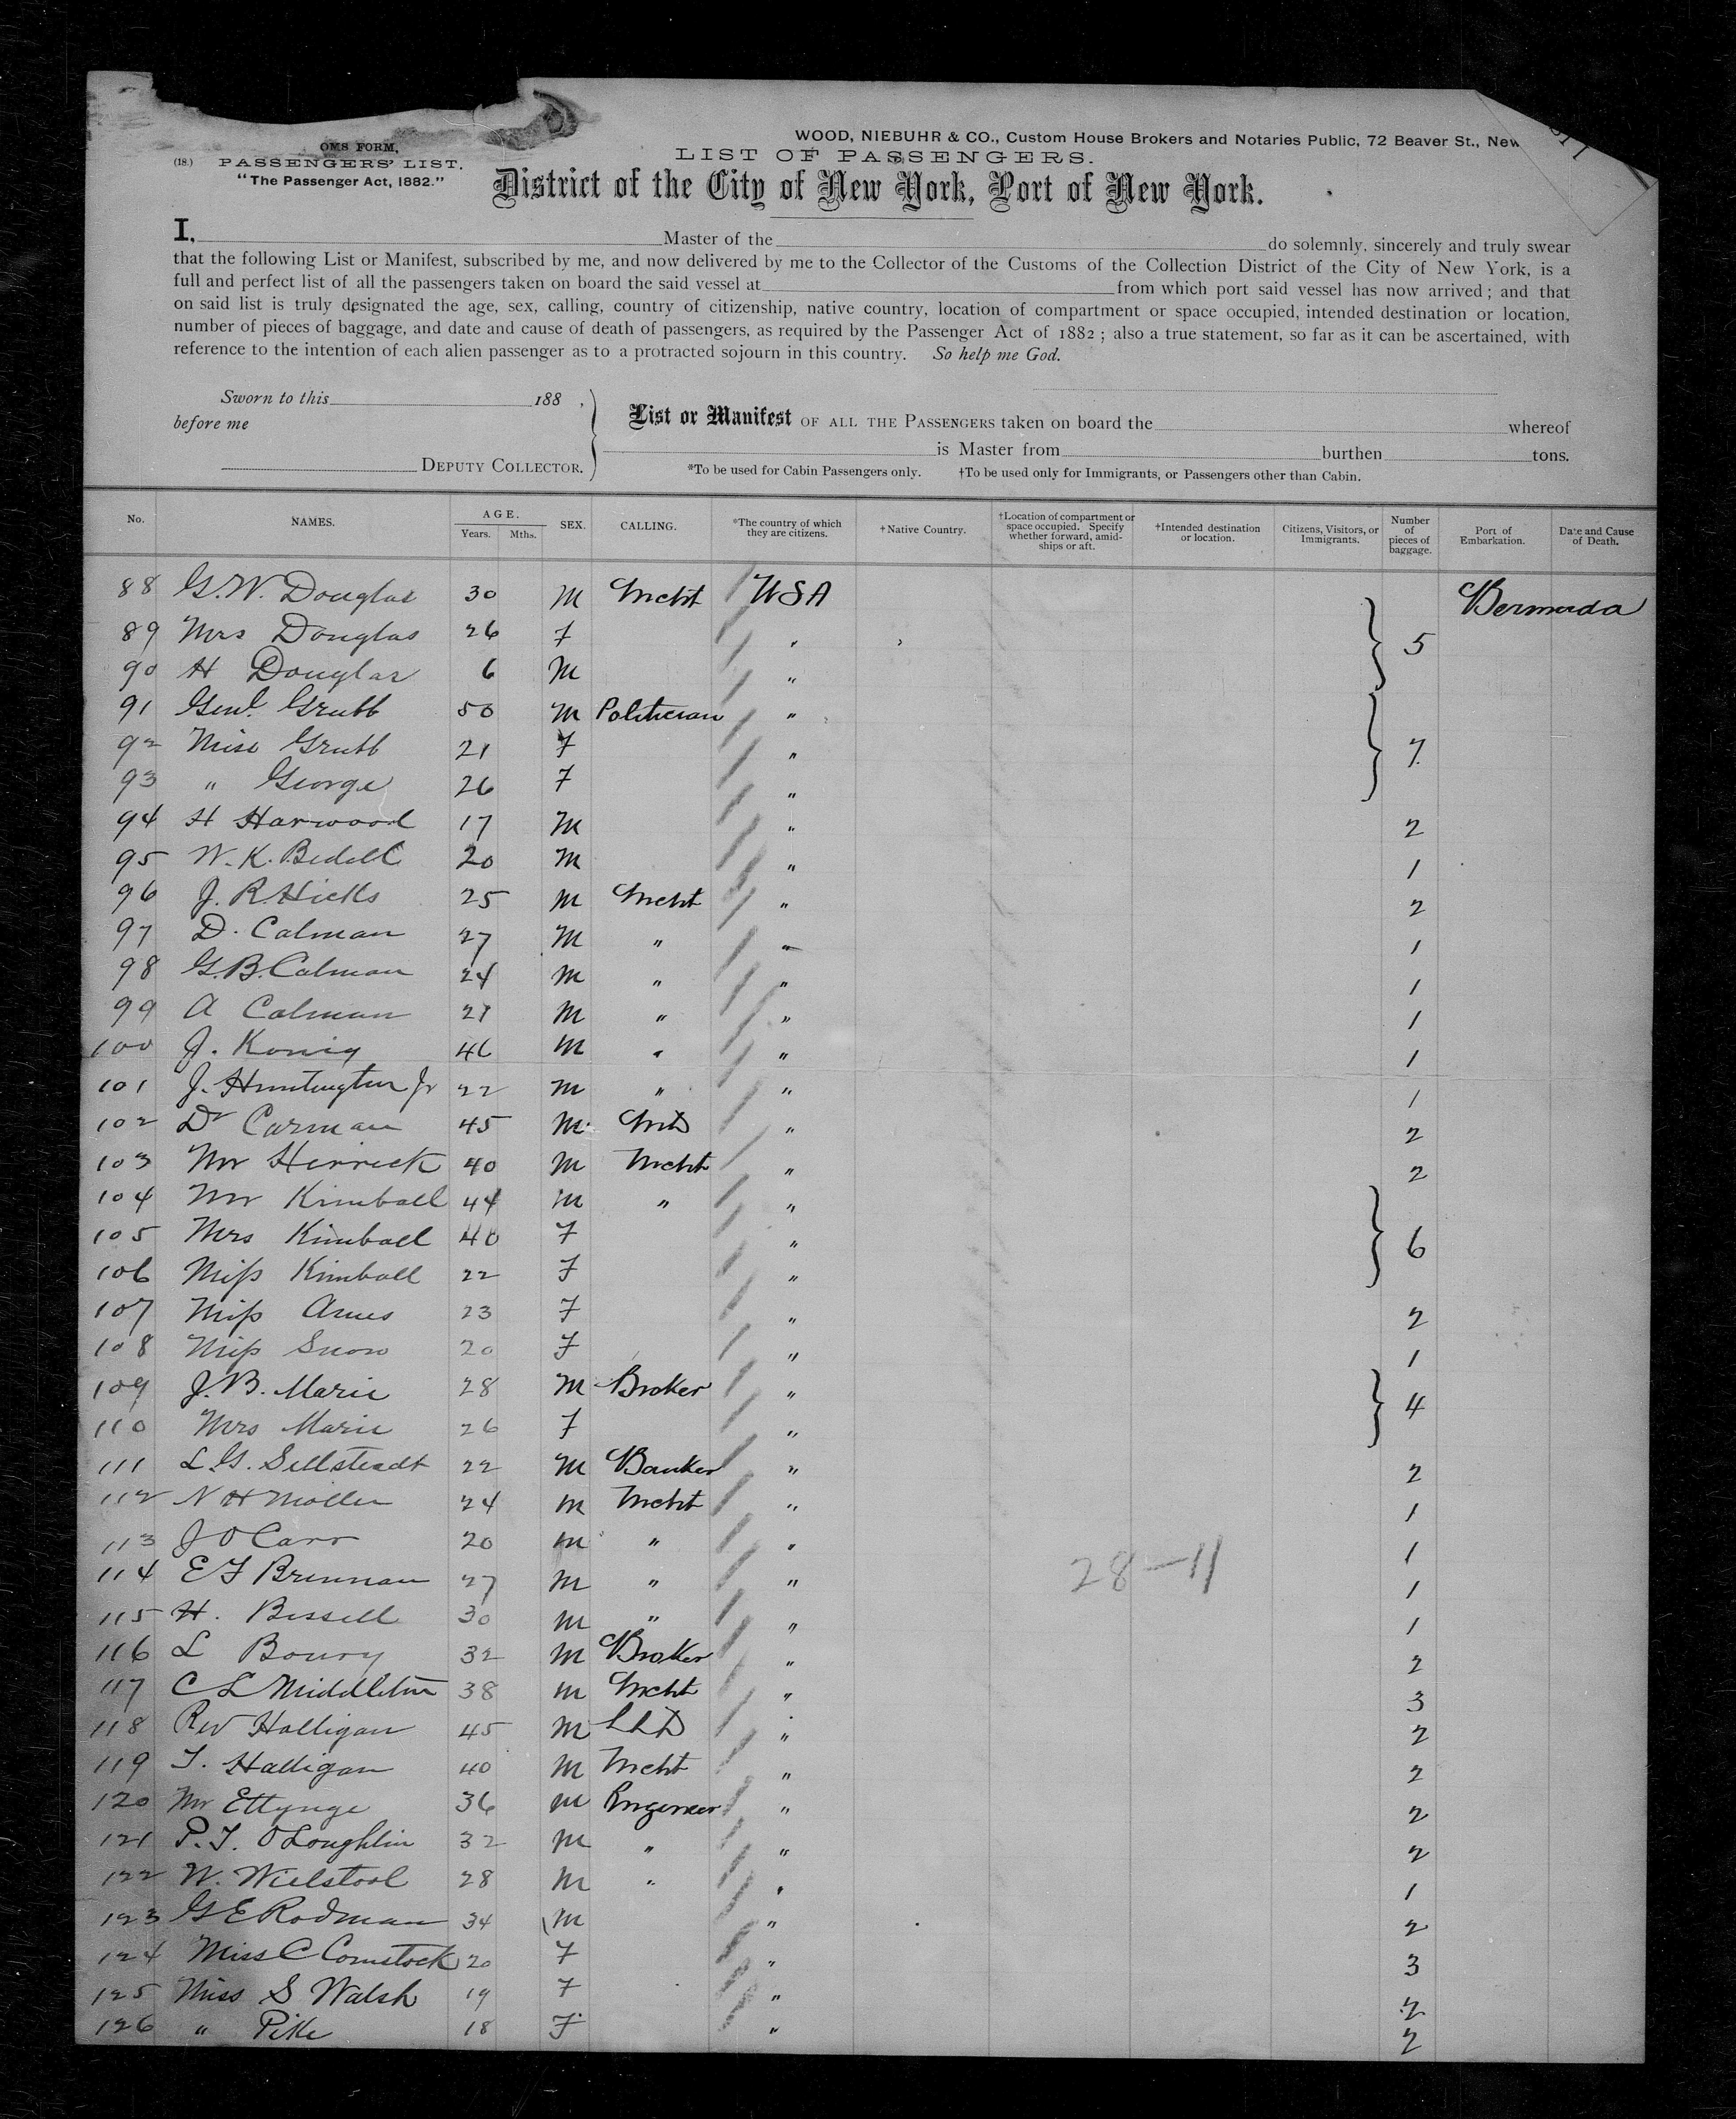 WOOD, NIEBUHR & CO., Custom House Brokers and Notaries Public, 72 Beaver St., New
OMS FORM,
(18.) PASSENGERS' LIST.
"The Passenger Act, 1882."
LIST OF PASSENGERS.
District of the City of New York, Port of New York.
I, Master of the do solemnly, sincerely and truly swear
that the following List or Manifest, subscribed by me, and now delivered by me to the Collector of the Customs of the Collection District of the City of New York, is a
full and perfect list of all the passengers taken on board the said vessel at from which port said vessel has now arrived; and that
on said list is truly designated the age, sex, calling, country of citizenship, native country, location of compartment or space occupied, intended destination or location,
number of pieces of baggage, and date and cause of death of passengers, as required by the Passenger Act of 1882; also a true statement, so far as it can be ascertained, with
reference to the intention of each alien passenger as to a protracted sojourn in this country. So help me God.
Sworn to this 188 ,
before me
DEPUTY COLLECTOR.
List or Manifest OF ALL THE PASSENGERS taken on board the whereof
is Master from burthen tons.
*To be used for Cabin Passengers only. †To be used only for Immigrants, or Passengers other than Cabin.
No. NAMES. AGE. Years. Mths. SEX. CALLING. *The country of which they are citizens. †Native Country. †Location of compartment or space occupied. Specify whether forward, amidships or aft. †Intended destination or location. Citizens, Visitors, or Immigrants. Number of pieces of baggage. Port of Embarkation. Date and Cause of Death.
88 G.W. Douglas 30 M Mcht USA Bermuda
89 Mrs Douglas 26 F " 5
90 H Douglas 6 M "
91 Genl. Grubb 50 M Politician "
92 Miss Grubb 21 F " 7
93 " George 26 F "
94 H Harwood 17 M " 2
95 W.K. Bedell 20 M " 1
96 J.R. Hicks 25 M Mcht " 2
97 D. Calman 27 M " " 1
98 G.B. Calman 24 M " " 1
99 A Calman 21 M " " 1
100 J. Konig 46 M " " 1
101 J. Huntington Jr 22 M " " 1
102 Dr Carman 45 M MD " 2
103 Mr Herrick 40 M Mcht " 2
104 Mr Kimball 44 M " "
105 Mrs Kimball 40 F " 6
106 Miss Kimball 22 F "
107 Miss Ames 23 F " 2
108 Miss Snow 20 F " 1
109 J.B. Marie 28 M Broker " 4
110 Mrs Marie 26 F "
111 L.G. Sellsteadt 22 M Banker " 2
112 N H Moller 24 M Mcht " 1
113 J O Carr 20 M " " 1
114 E F Brennan 27 M " " 1
115 H. Bissell 30 M " " 1
116 L Boury 32 M Broker " 2
117 C L Middleton 38 M Mcht " 3
118 Rev Halligan 45 M LLD " 2
119 T. Halligan 40 M Mcht " 2
120 Mr Ettynge 36 M Engineer " 2
121 P.J. O'Loughlin 32 M " " 2
122 W. Wielstool 28 M " " 1
123 G E Rodman 34 M " 2
124 Miss C Comstock 20 F " 3
125 Miss S Walsh 19 F " 2
126 " Pike 18 F " 2
28-11